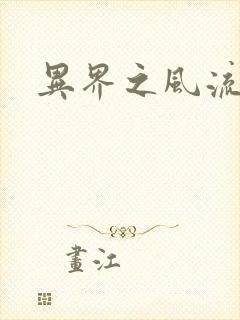 異界之風流
畫江